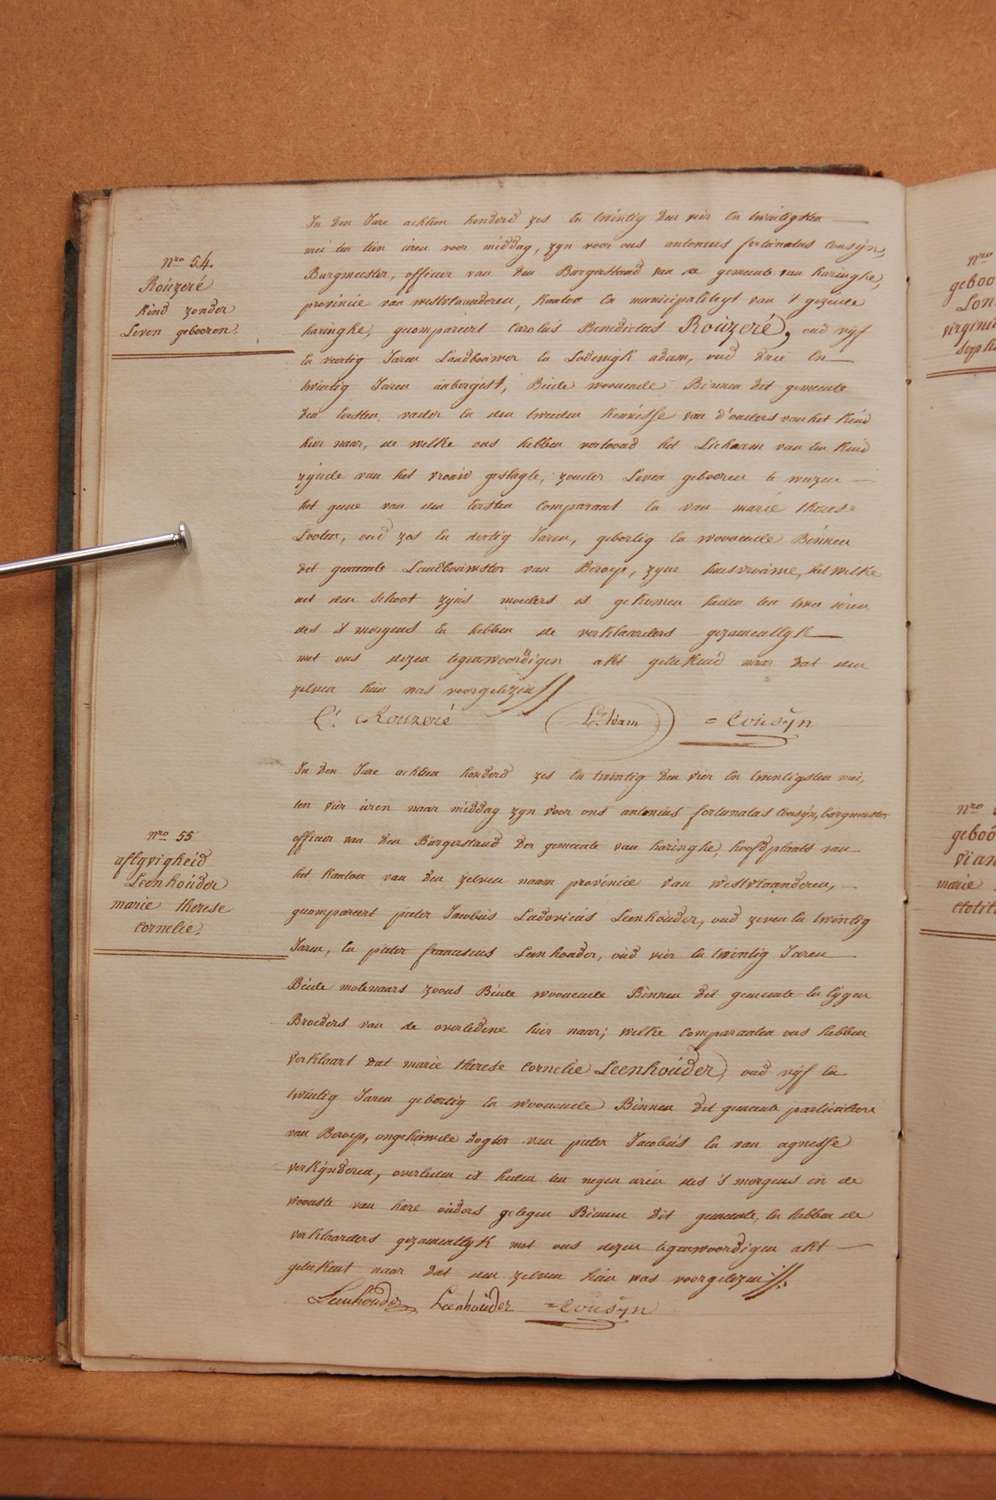 Nro 54.
Roúzeré
Kind zonder
Leven gebooren.
In den Jare achtien honderd zes en twintig den vier en twintigsten
mei ten tien úren voor middag, zyn voor ons antonius fortúnatus Coúsÿn,
Burgmeester, officier van den Burgerstand van de gemeente van haringhe,
provincie van westvlaanderen, kanton en municipaliteyt van 't gezeide
haringhe, gecompareert Carolús Benedictus Roúzeré, oúd vijf
en veertig Jaren Landboúwer en Lodewijk adam, oúd drie en
twintig Jaren Beide woonende Binnen dit gemeente
den eersten vader en den tweeden kennisse van d'ouders van het kind
hier naar, de welke ons hebben vertoond het Lichaam van een kind
zijnde van het vroúw geslagte, zonder Leven gebooren te weezen
het geene van den eersten comparant en van marie therese
oúd zes en dertig Jaren, gebortig en woonende Binnen
dit gemeente Landboúwster van Beroep, zyne húisvroúwe, het welke
uit den schoot zyns moeders is gekomen heden ten twee úren
des 's morgens en hebben de verklaarders gezamentlyk
met ons dezen tegenwoordigen akt geteekend naar dat den
zelven húin was voorgelezen
C. Roúzeré Ls. Adam = Coúsÿn
In den Jare achtien honderd zes en twintig den vier en twintigsten mei,
ten vier úren naar middag zyn voor ons antonius fortunatus Coúsÿn, burgmeester
officier van den Búrgerstand der gemeente van haringhe, hoofdplaats van
het kanton van den zelven naam provincie van Westvlaanderen,
gecompareert pieter Jacobús Ludovicús Leenhoúder, oúd zeven en twintig
Jaren, en pieter franciscús Leenhouder, oúd vier en twintig Jaren
Beide molenaars zoons Beide woonende Binnen dit gemeente en eÿgen
Broeders van de overledene hier naar; welke comparanten ons hebben
verklaart dat marie therese cornelie Leenhoúder, oud vijf en
twintig Jaren gebortig en woonende Binnen dit gemeente particuliere
van Beroep, ongehúwde dogter van pieter Jacobús en van agnesse
verkÿnderen, overleden is heden ten negen úren des 's morgens in de
woonste van hare oúders gelegen Binnen dit gemeente, en hebben de
verklaarders gezamentlyk met ons dezen tegenwoordigen akt
geteekent naar dat den zelven húin was voorgelezen
Leenhoúder Leenhoúder = Coúsÿn
Nro 55
aflyvigheid
Leenhoúder
marie therese
cornelie.
Nro
geboo
virginie
Nro
geboo
vian
marie